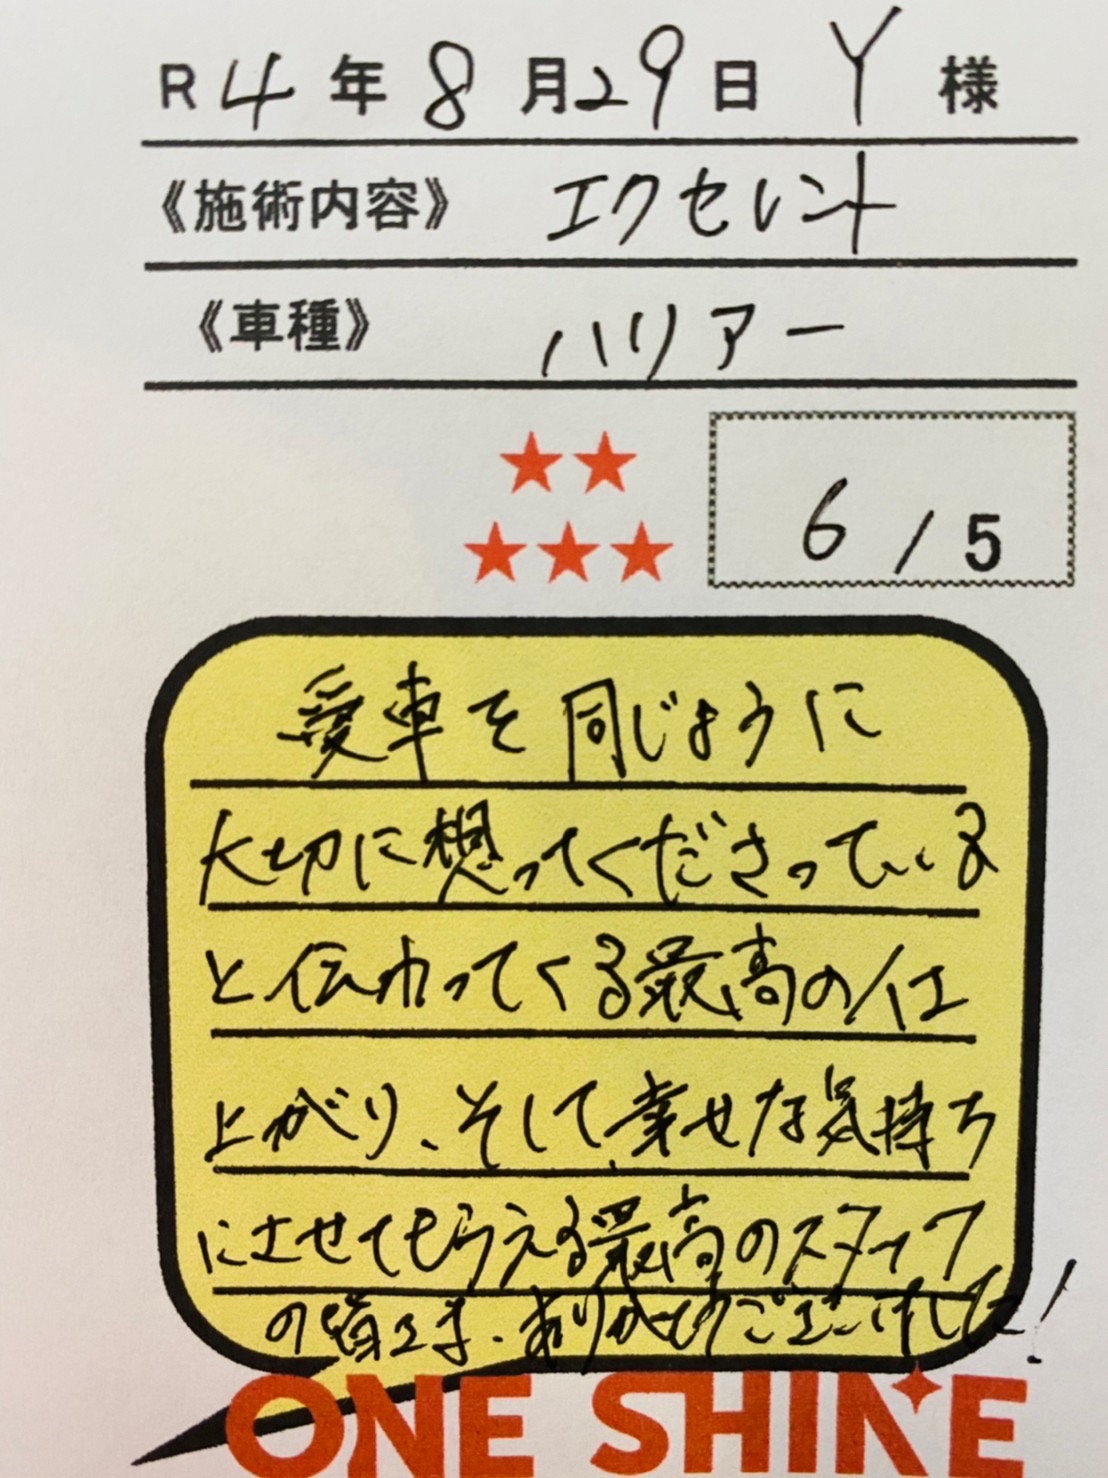 R4年8月29日 Y 様
《施術内容》 エクセレント
《車種》 ハリアー
★★
★★★
6/5
愛車を同じように
大切に想ってくださっている
と伝わってくる最高の仕
上がり、そして、幸せな気持ち
にさせてもらえる最高のスタッフ
の皆さま、ありがとうございました!
ONE SHINE